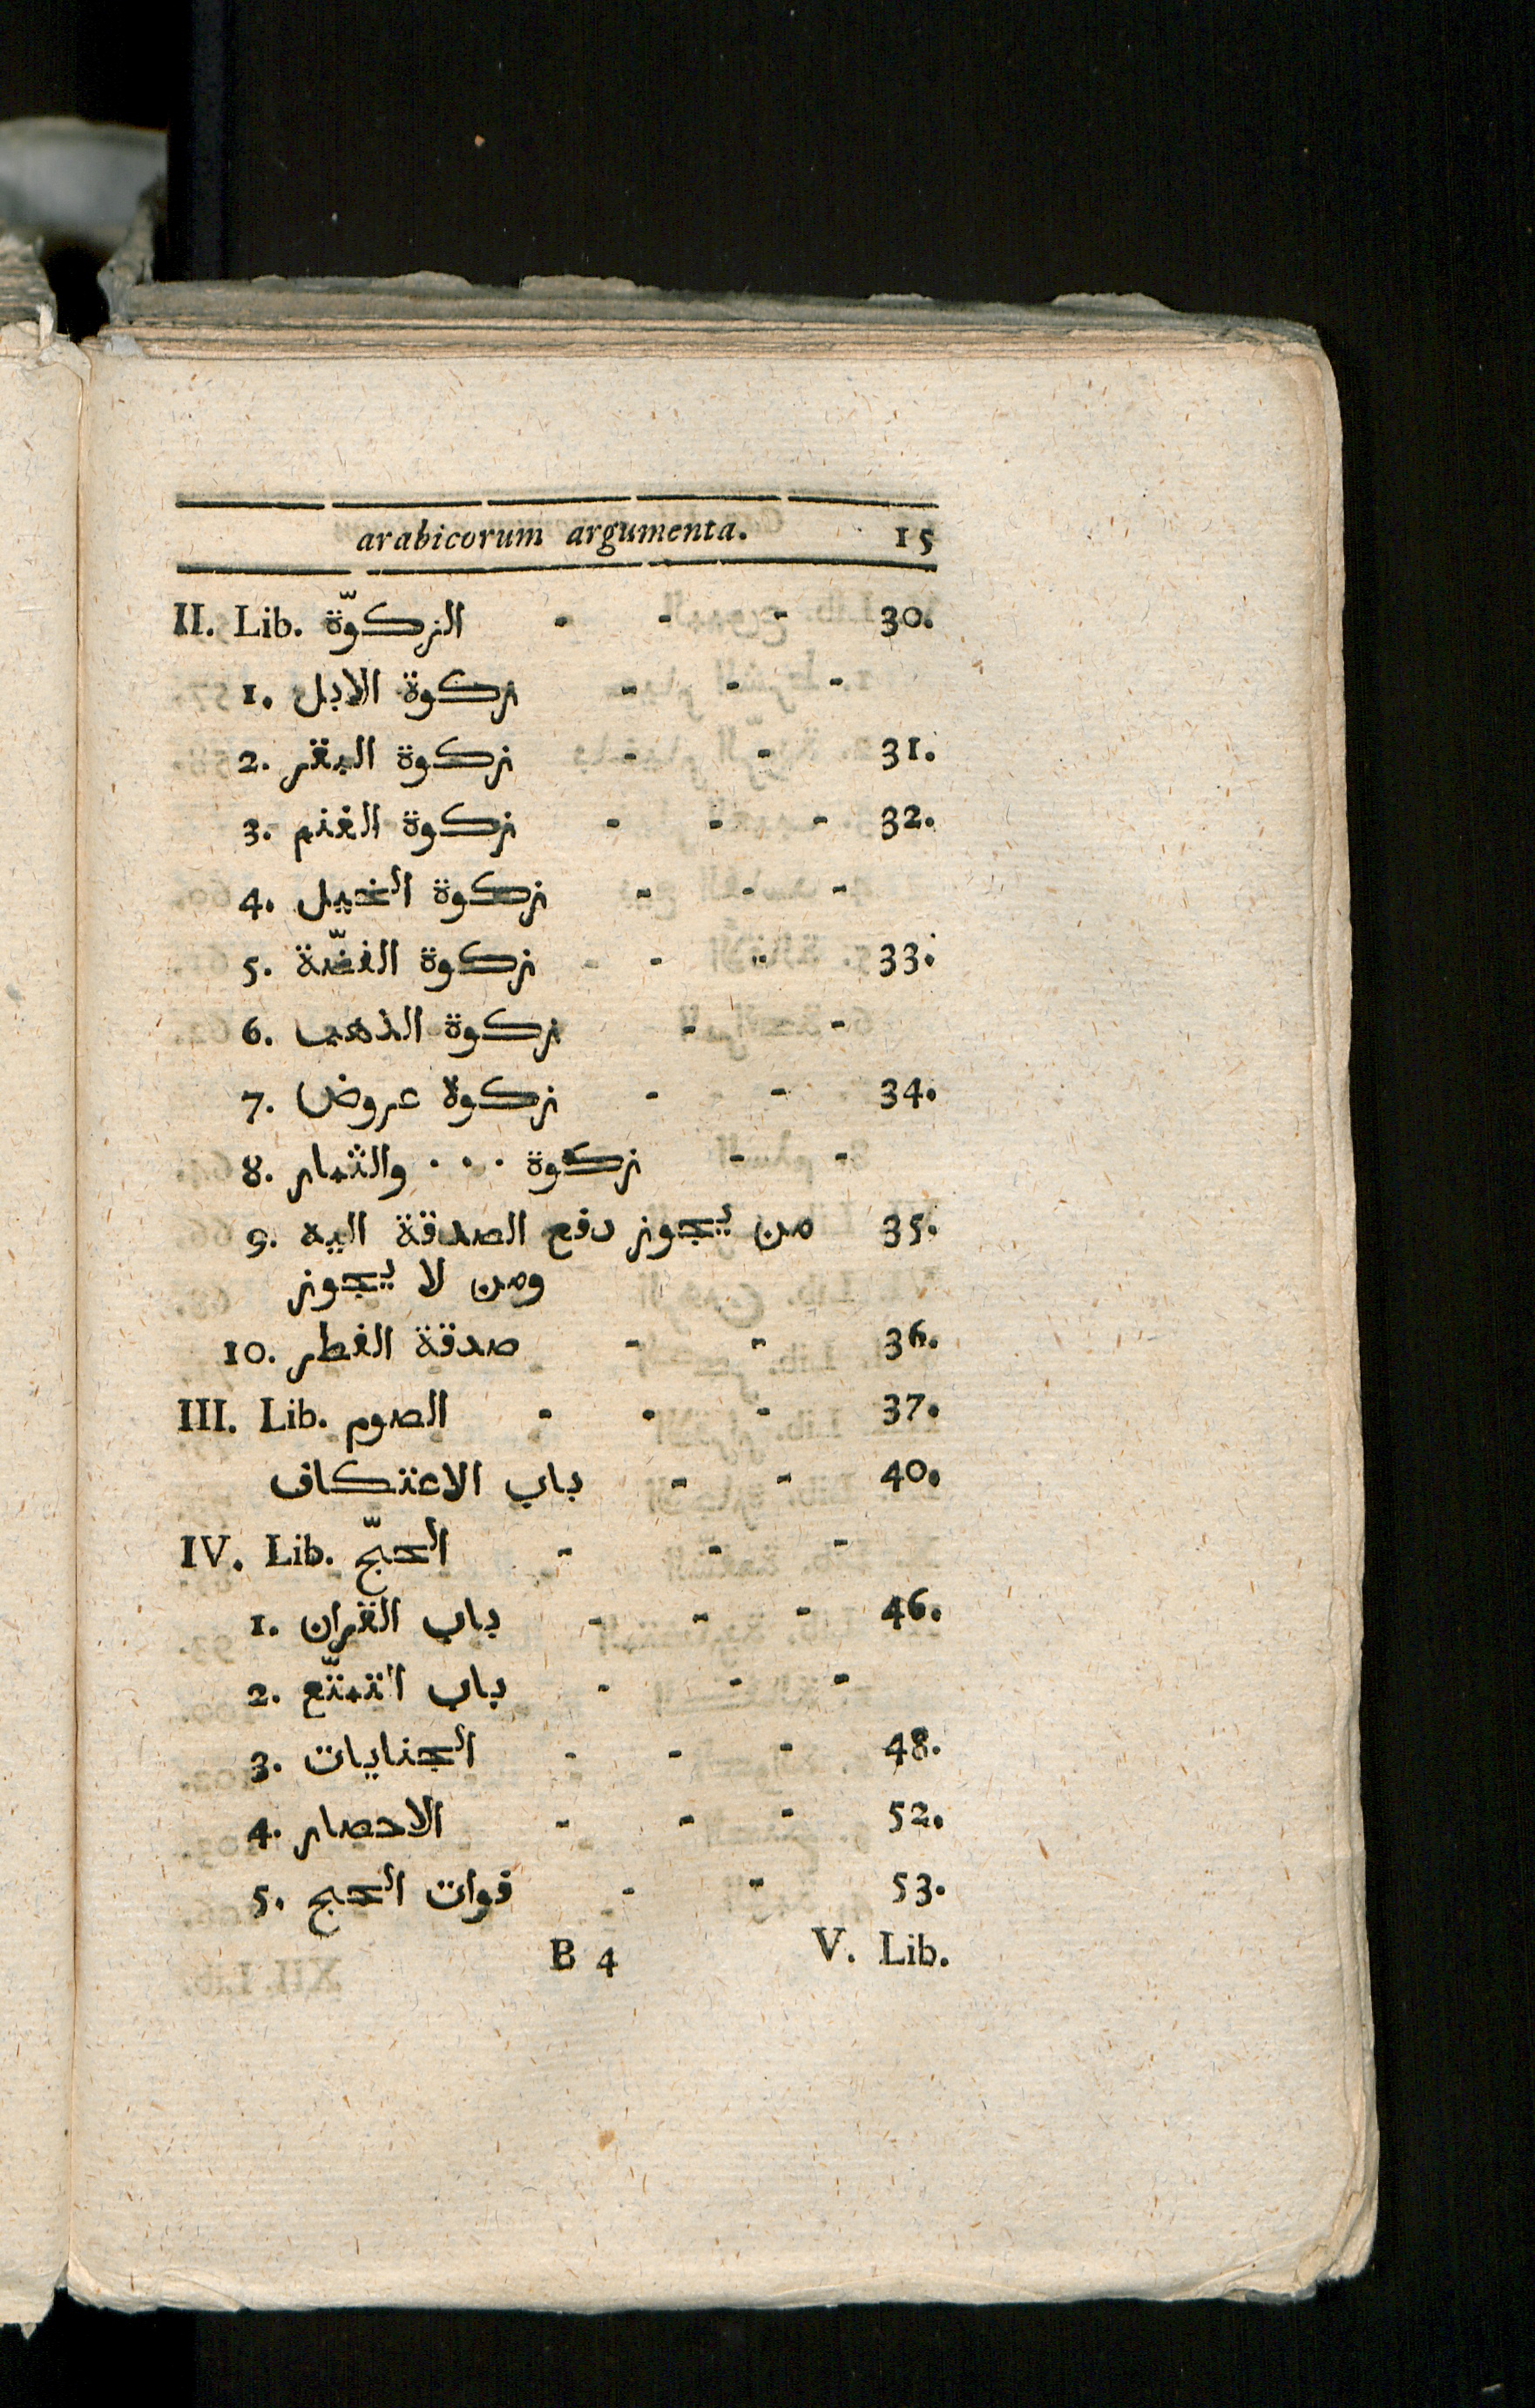 arabicorum argumenta. 15
II. Lib. الزكوّة - - - 30.
1. زكوة الابل - - -
2. زكوة البقر - - 31.
3. زكوة الغنم - - - 32.
4. زكوة الخيل - - -
5. زكوة الفضّة - - - 33.
6. زكوة الذهب - -
7. زكوة عروض - - 34.
8. زكوة . . . والثمار - -
9. من يجوز دفع الصدقة اليه 35.
ومن لا يجوز
10. صدقة الفطر - - 36.
III. Lib. الصوم - - - 37.
باب الاعتكاف - - 40.
IV. Lib. الحجّ - - -
1. باب القران - - - 46.
2. باب اتمتّع - - -
3. الجنايات - - - 48.
4. الاحصار - - - 52.
5. فوات الحج - - 53.
B 4 V. Lib.